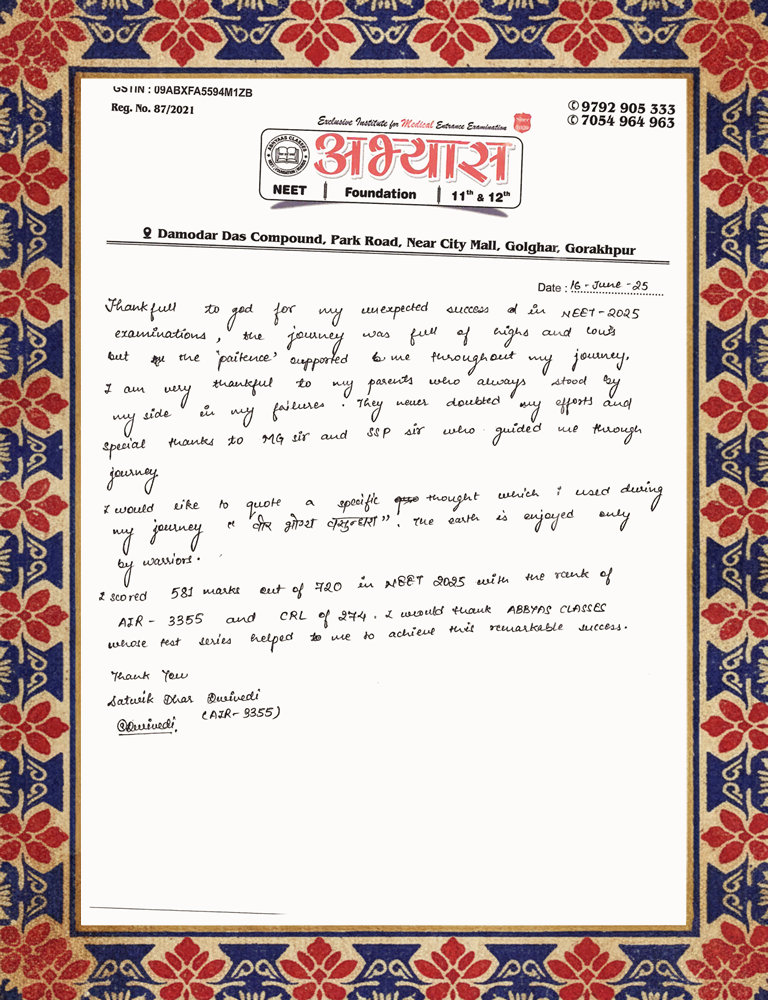 GSTIN : 09ABXFA5594M1ZB
Reg. No. 87/2021
✆ 9792 905 333
✆ 7054 964 963
Exclusive Institute for Medical Entrance Examination
ABHYAAS CLASSES
अभ्यास
NEET | Foundation | 11th & 12th
Damodar Das Compound, Park Road, Near City Mall, Golghar, Gorakhpur
Date : 16-June-25
Thankfull to god for my unexpected success in NEET-2025
examinations, the journey was full of highs and lows
but the 'paitence' supported to me throughout my journey.
I am very thankful to my parents who always stood by
my side in my failures. They never doubted my efforts and
special thanks to MG sir and SSP sir who guided me through
journey
I would like to quote a specific thought which i used during
my journey " वीर भोग्य वसुन्धरा ". The earth is enjoyed only
by warriors.
I scored 581 marks out of 720 in NEET 2025 with the rank of
AIR - 3355 and CRL of 274. I would thank ABBYAS CLASSES
whose test series helped to me to achieve this remarkable success.
Thank You
Satwik Dhar Dwivedi
(AIR-3355)
@Dwivedi.